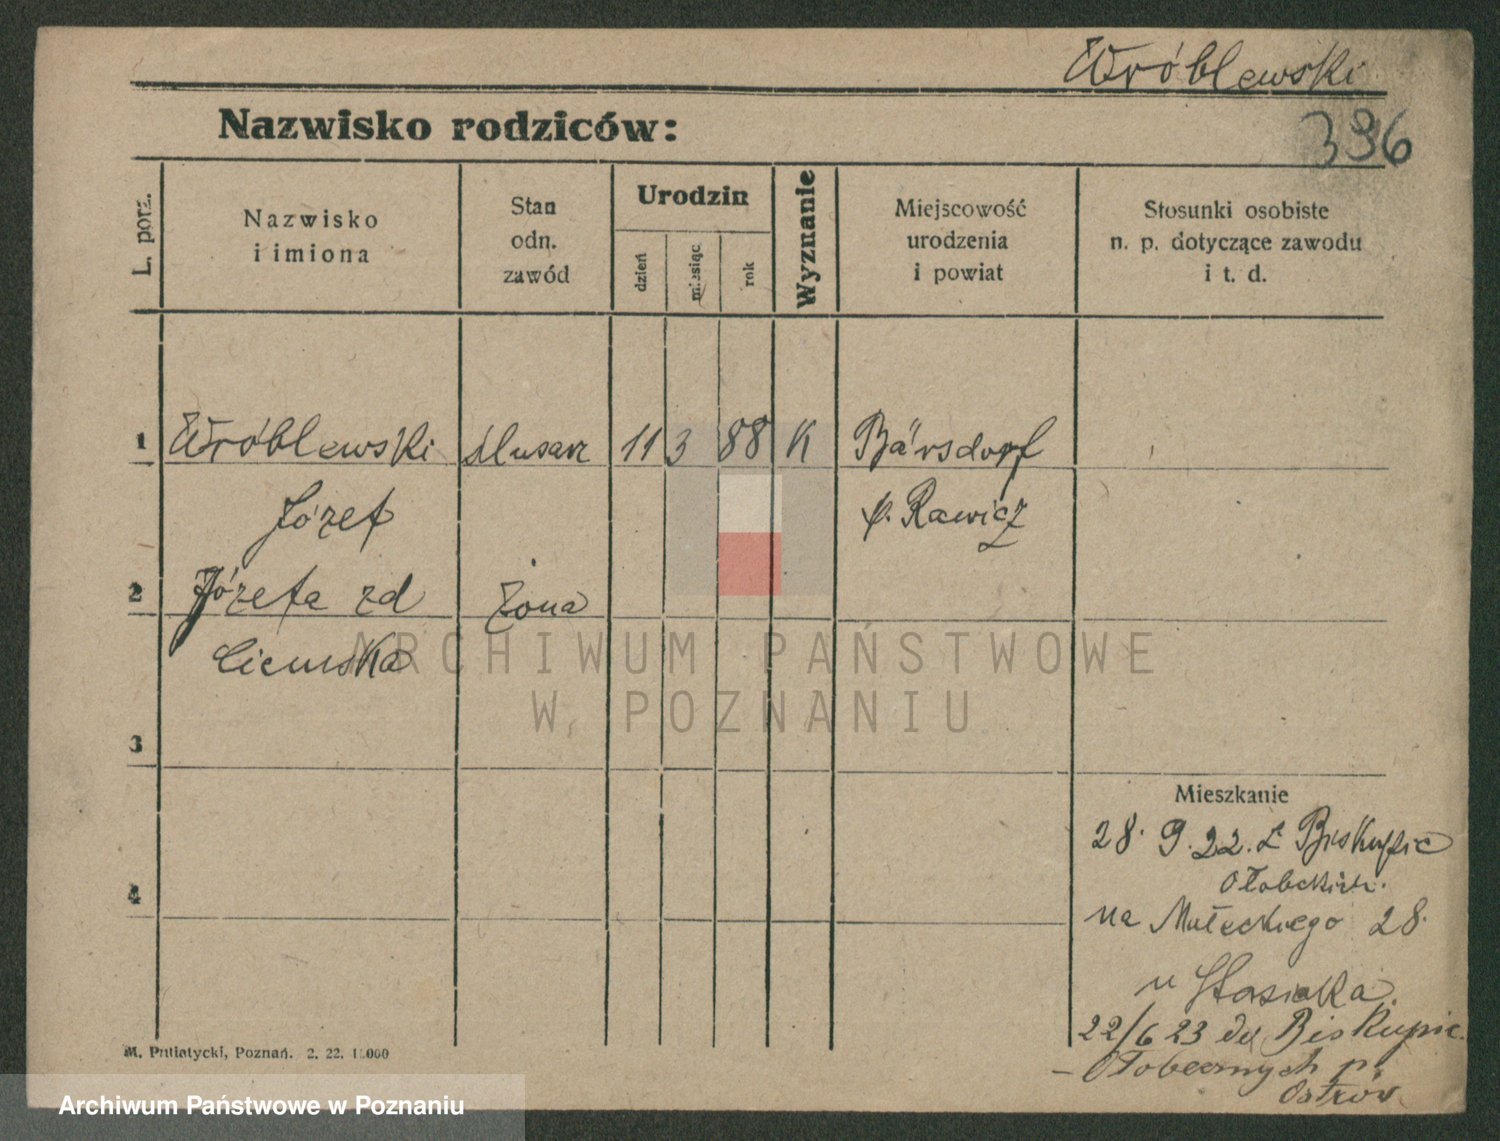 Wróblewski
Nazwisko rodziców:
396
L. porz.
Nazwisko
i imiona
Stan
odn.
zawód
Urodzin
dzień
miesiąc
rok
Wyznanie
Miejscowość
urodzenia
i powiat
Stosunki osobiste
n. p. dotyczące zawodu
i t. d.
1 Wróblewski ślusarz 11 3 88 K Bärsdorf
Józef p. Rawicz
2 Józefa zd żona
3
Mieszkanie
28. 9. 22. z Biskupic
Ołobockich.
4
na Małeckiego 28.
u Stasiaka.
22/6 23 do Biskupic
Ołobocznych p.
Ostrów
M. Putiatycki, Poznań. 2. 22. 11.000
ARCHIWUM PAŃSTWOWE
W POZNANIU
Archiwum Państwowe w Poznaniu